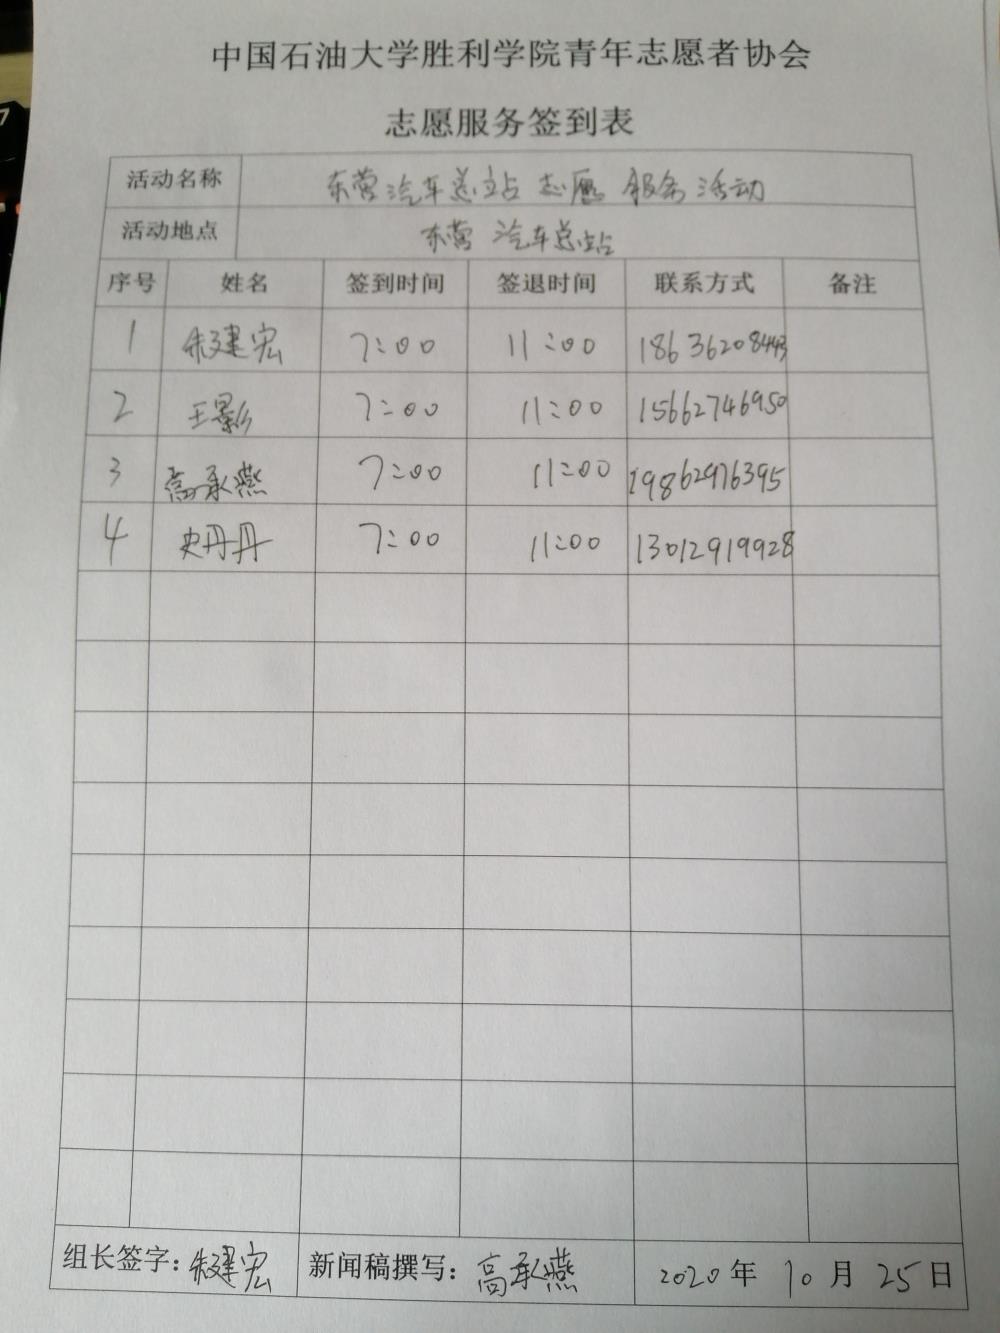 中国石油大学胜利学院青年志愿者协会
志愿服务签到表
活动名称 东营汽车总站 志愿 服务 活动
活动地点 东营 汽车总站
序号 姓名 签到时间 签退时间 联系方式 备注
1 朱建宏 7:00 11:00 18636208443
2 王影 7:00 11:00 15662746950
3 高承燕 7:00 11:00 19862976395
4 史丹丹 7:00 11:00 13012919928
组长签字：朱建宏 新闻稿撰写：高承燕 2020年 10月 25日